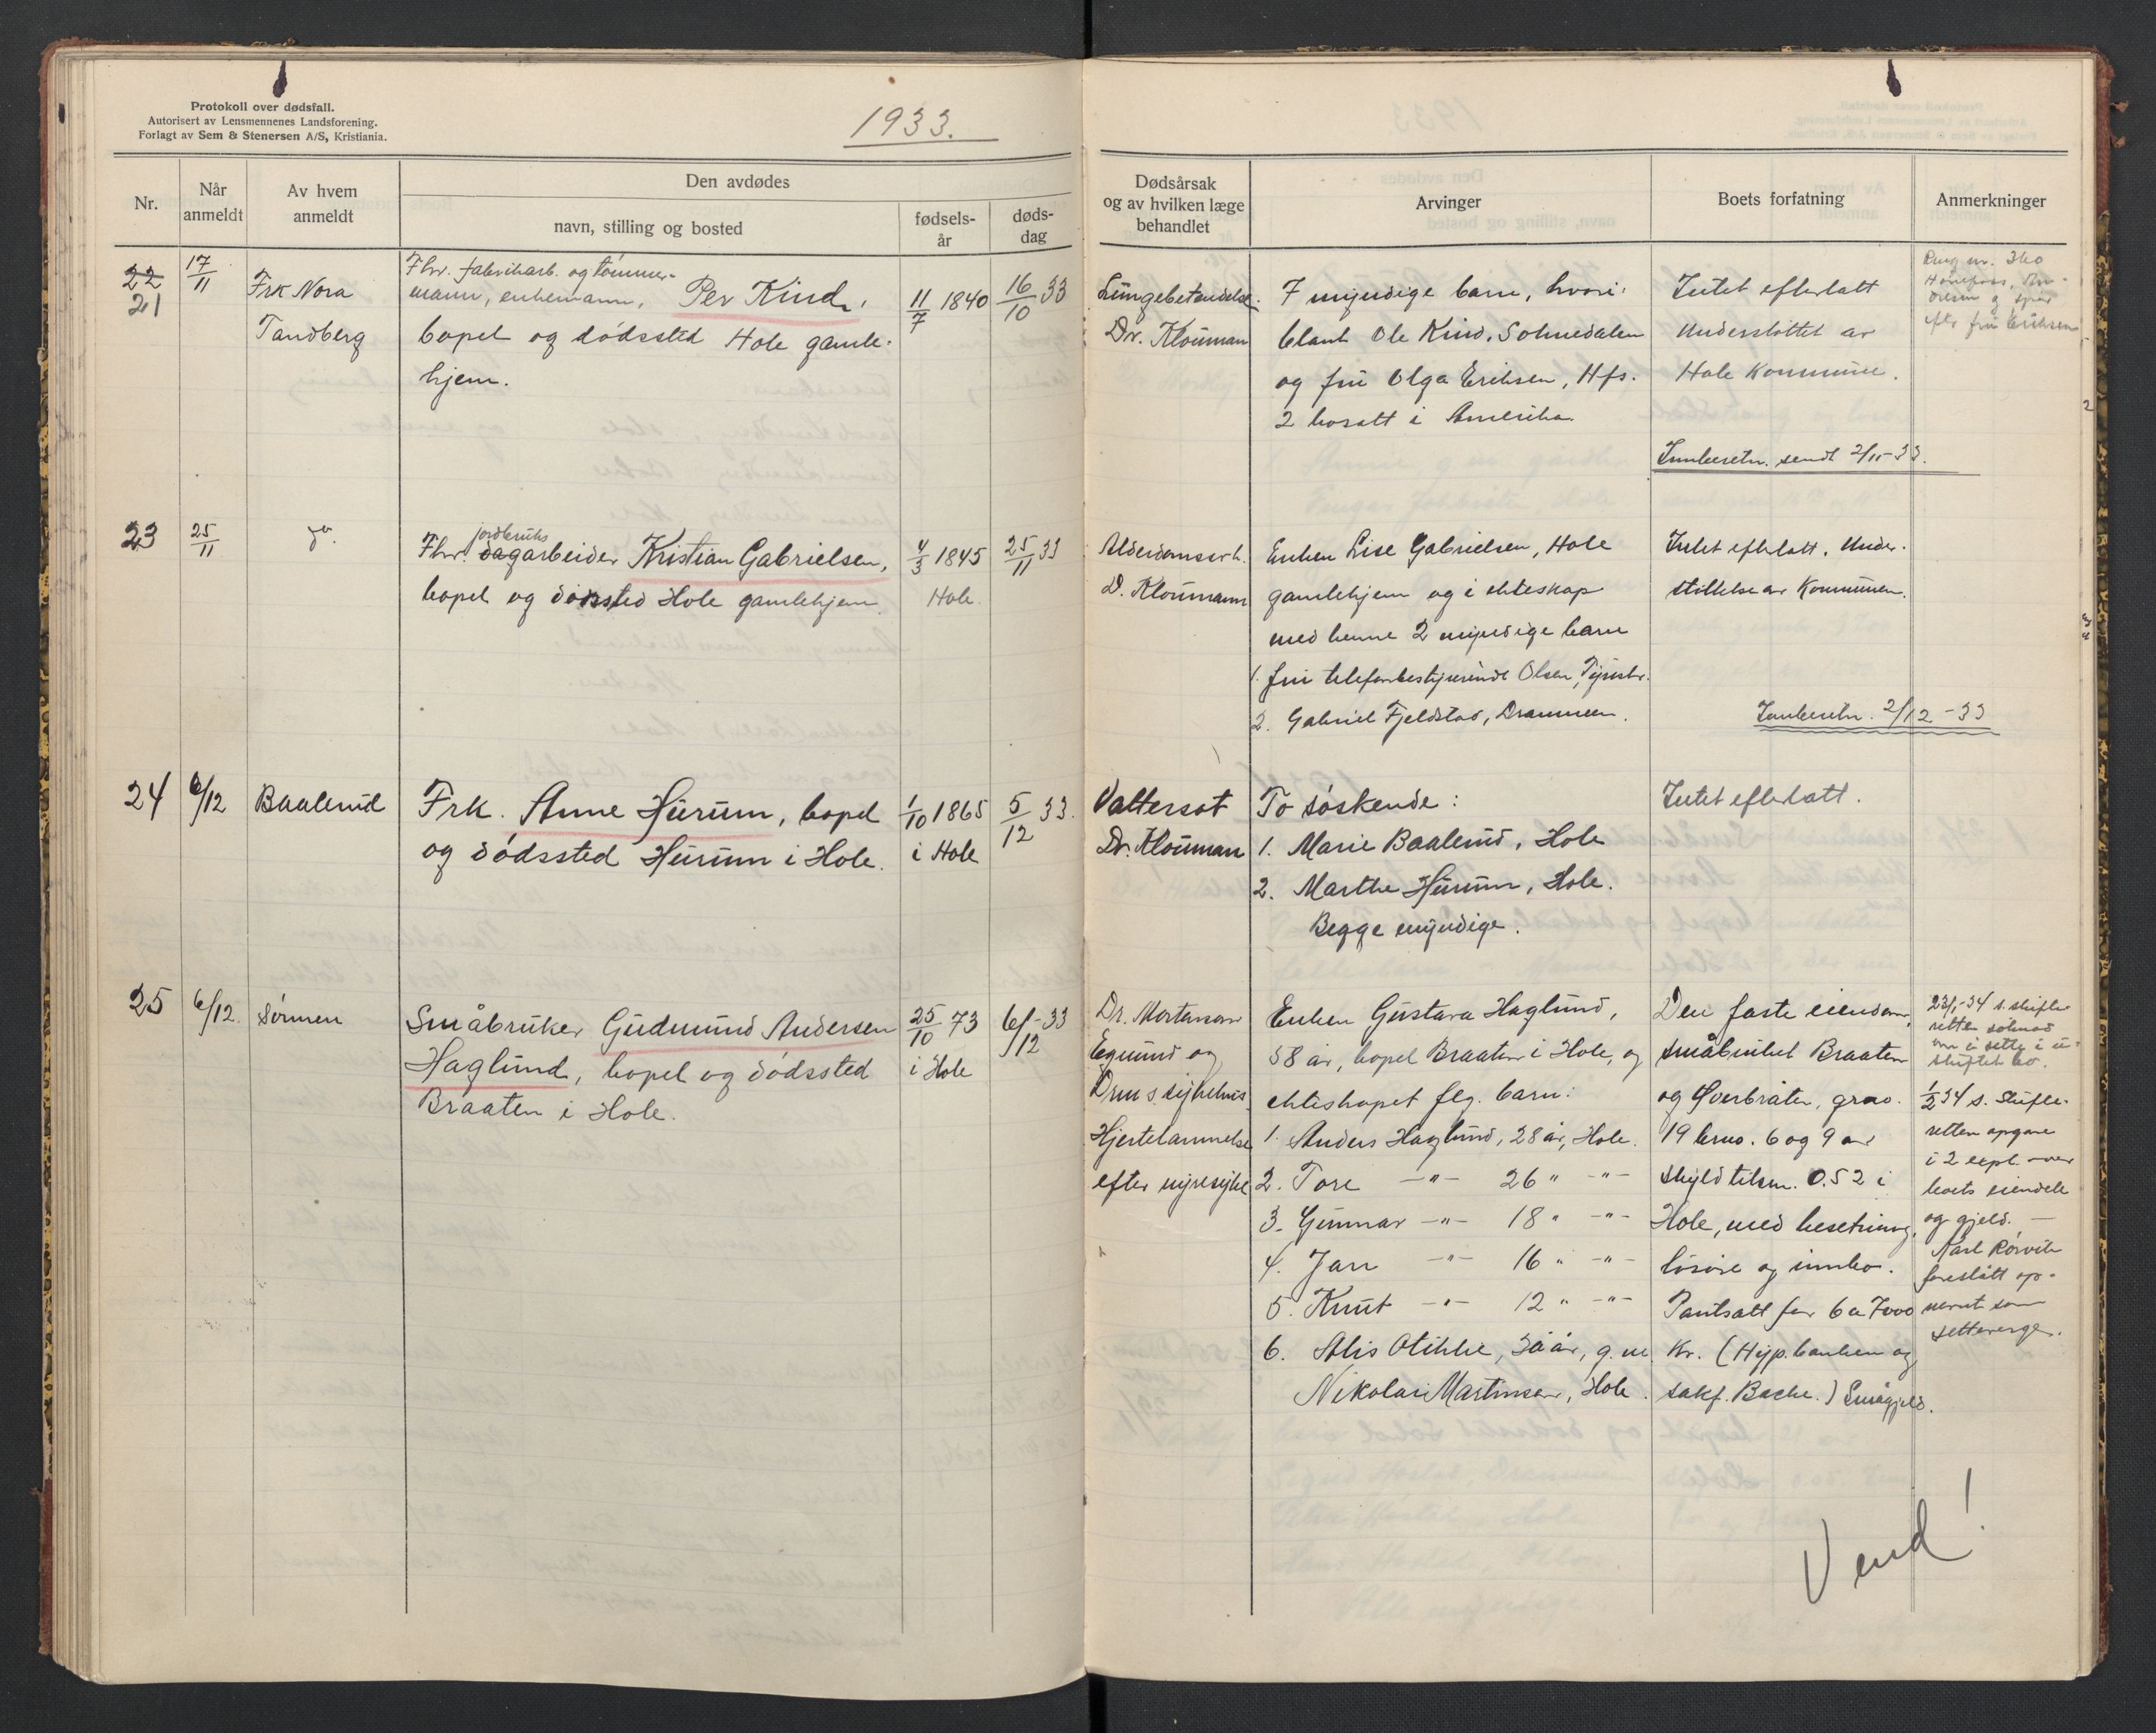 Protokoll over dødsfall.
Autorisert av Lensmennenes Landsforening.
Forlagt av Sem & Stenersen A/S, Kristiania.
1933.
Nr.
Når anmeldt
Av hvem anmeldt
Den avdødes
navn, stilling og bosted
fødsels-år
døds-dag
Dødsårsak og av hvilken læge behandlet
Arvinger
Boets forfatning
Anmerkninger
22
21
17/11
Frk Nora
Tandberg
Fhv. fabrikarb. og tømmer-
mann, enkemann, Per Kind,
bopel og dødssted Hole gamle-
hjem.
11/7 1840
16/10 33
Lungebetendelse.
Dr. Klouman
7 myndige barn, hvori-
blant Ole Kind, Soknedalen
og fru Olga Eriksen, Hfs.
2 bosatt i Amerika
Intet efterlatt
Understøttet av
Hole Kommune.
Innberetn. sendt 2/11-33.
Ring nr. 360
Hønefoss,
og spør
efter fru Eriksen
23
25/11
Fhv. jordbruks
dagarbeider Kristian Gabrielsen,
bopel og dødssted Hole gamlehjem.
4/3 1845
Hole
25/11 33
Alderdomssvh.
D. Kloumann
Enken Lise Gabrielsen, Hole
gamlehjem og i ekteskap
med henne 2 myndige barn
1. fru telefonbestyrerinde Olsen, Tyristr.
2. Gabriel Fjeldstad, Drammen.
Intet efterlatt. Under-
støttelse av Kommunen.
Innberetn. 2/12-33
24
6/12
Baalerud
Frk. Anne Hurum, bopel
og dødssted Hurum i Hole.
1/10 1865
i Hole
5/12 33.
Vattersot
Dr. Klouman
To søskende:
1. Marie Baalerud, Hole
2. Marthe Hurum, Hole.
Begge myndige.
Intet efterlatt.
25
6/12.
Sørmen
Småbruker Gudmund Andersen
Haglund, bopel og dødssted
Braaten i Hole.
25/10 73
i Hole
6/12-33
Dr. Mortensen
Egmund og
Drms. sykehus.
Hjertelammelse
efter nyresyke
Enken Gustava Haglund,
58 år, bopel Braaten i Hole, og
ekteskapet flg. barn:
1. Anders Haglund, 28 år, Hole.
2. Tore -"- 26 " -"-
3. Gunnar -"- 18 " -"-
4. Jan -"- 16 " -"-
5. Knut -"- 12 " -"-
6. Alis Otikke, 30 år, g. m.
Nikolai Martinsen, Hole.
Den faste eiendom,
småbruket Braaten
og Øverbråten, grno.
19 brno. 6 og 9 av
skyld tilsm. 0.52 i
Hole, med besetning,
løsøre og innbo.
Pantsatt for 6 a 7000
Kr. (Hyp.banken og
sakf. Bache.) Smågjeld.
23/1-34 s. skifte-
retten søknad
om å sitte i u-
skiftet bo.
1/2 34 s. Skifte-
retten opgave
i 2 expl. over
boets eiendele
og gjeld. —
Karl Rørvik
foreslått op-
nevnt som
setteverge.
Vend!